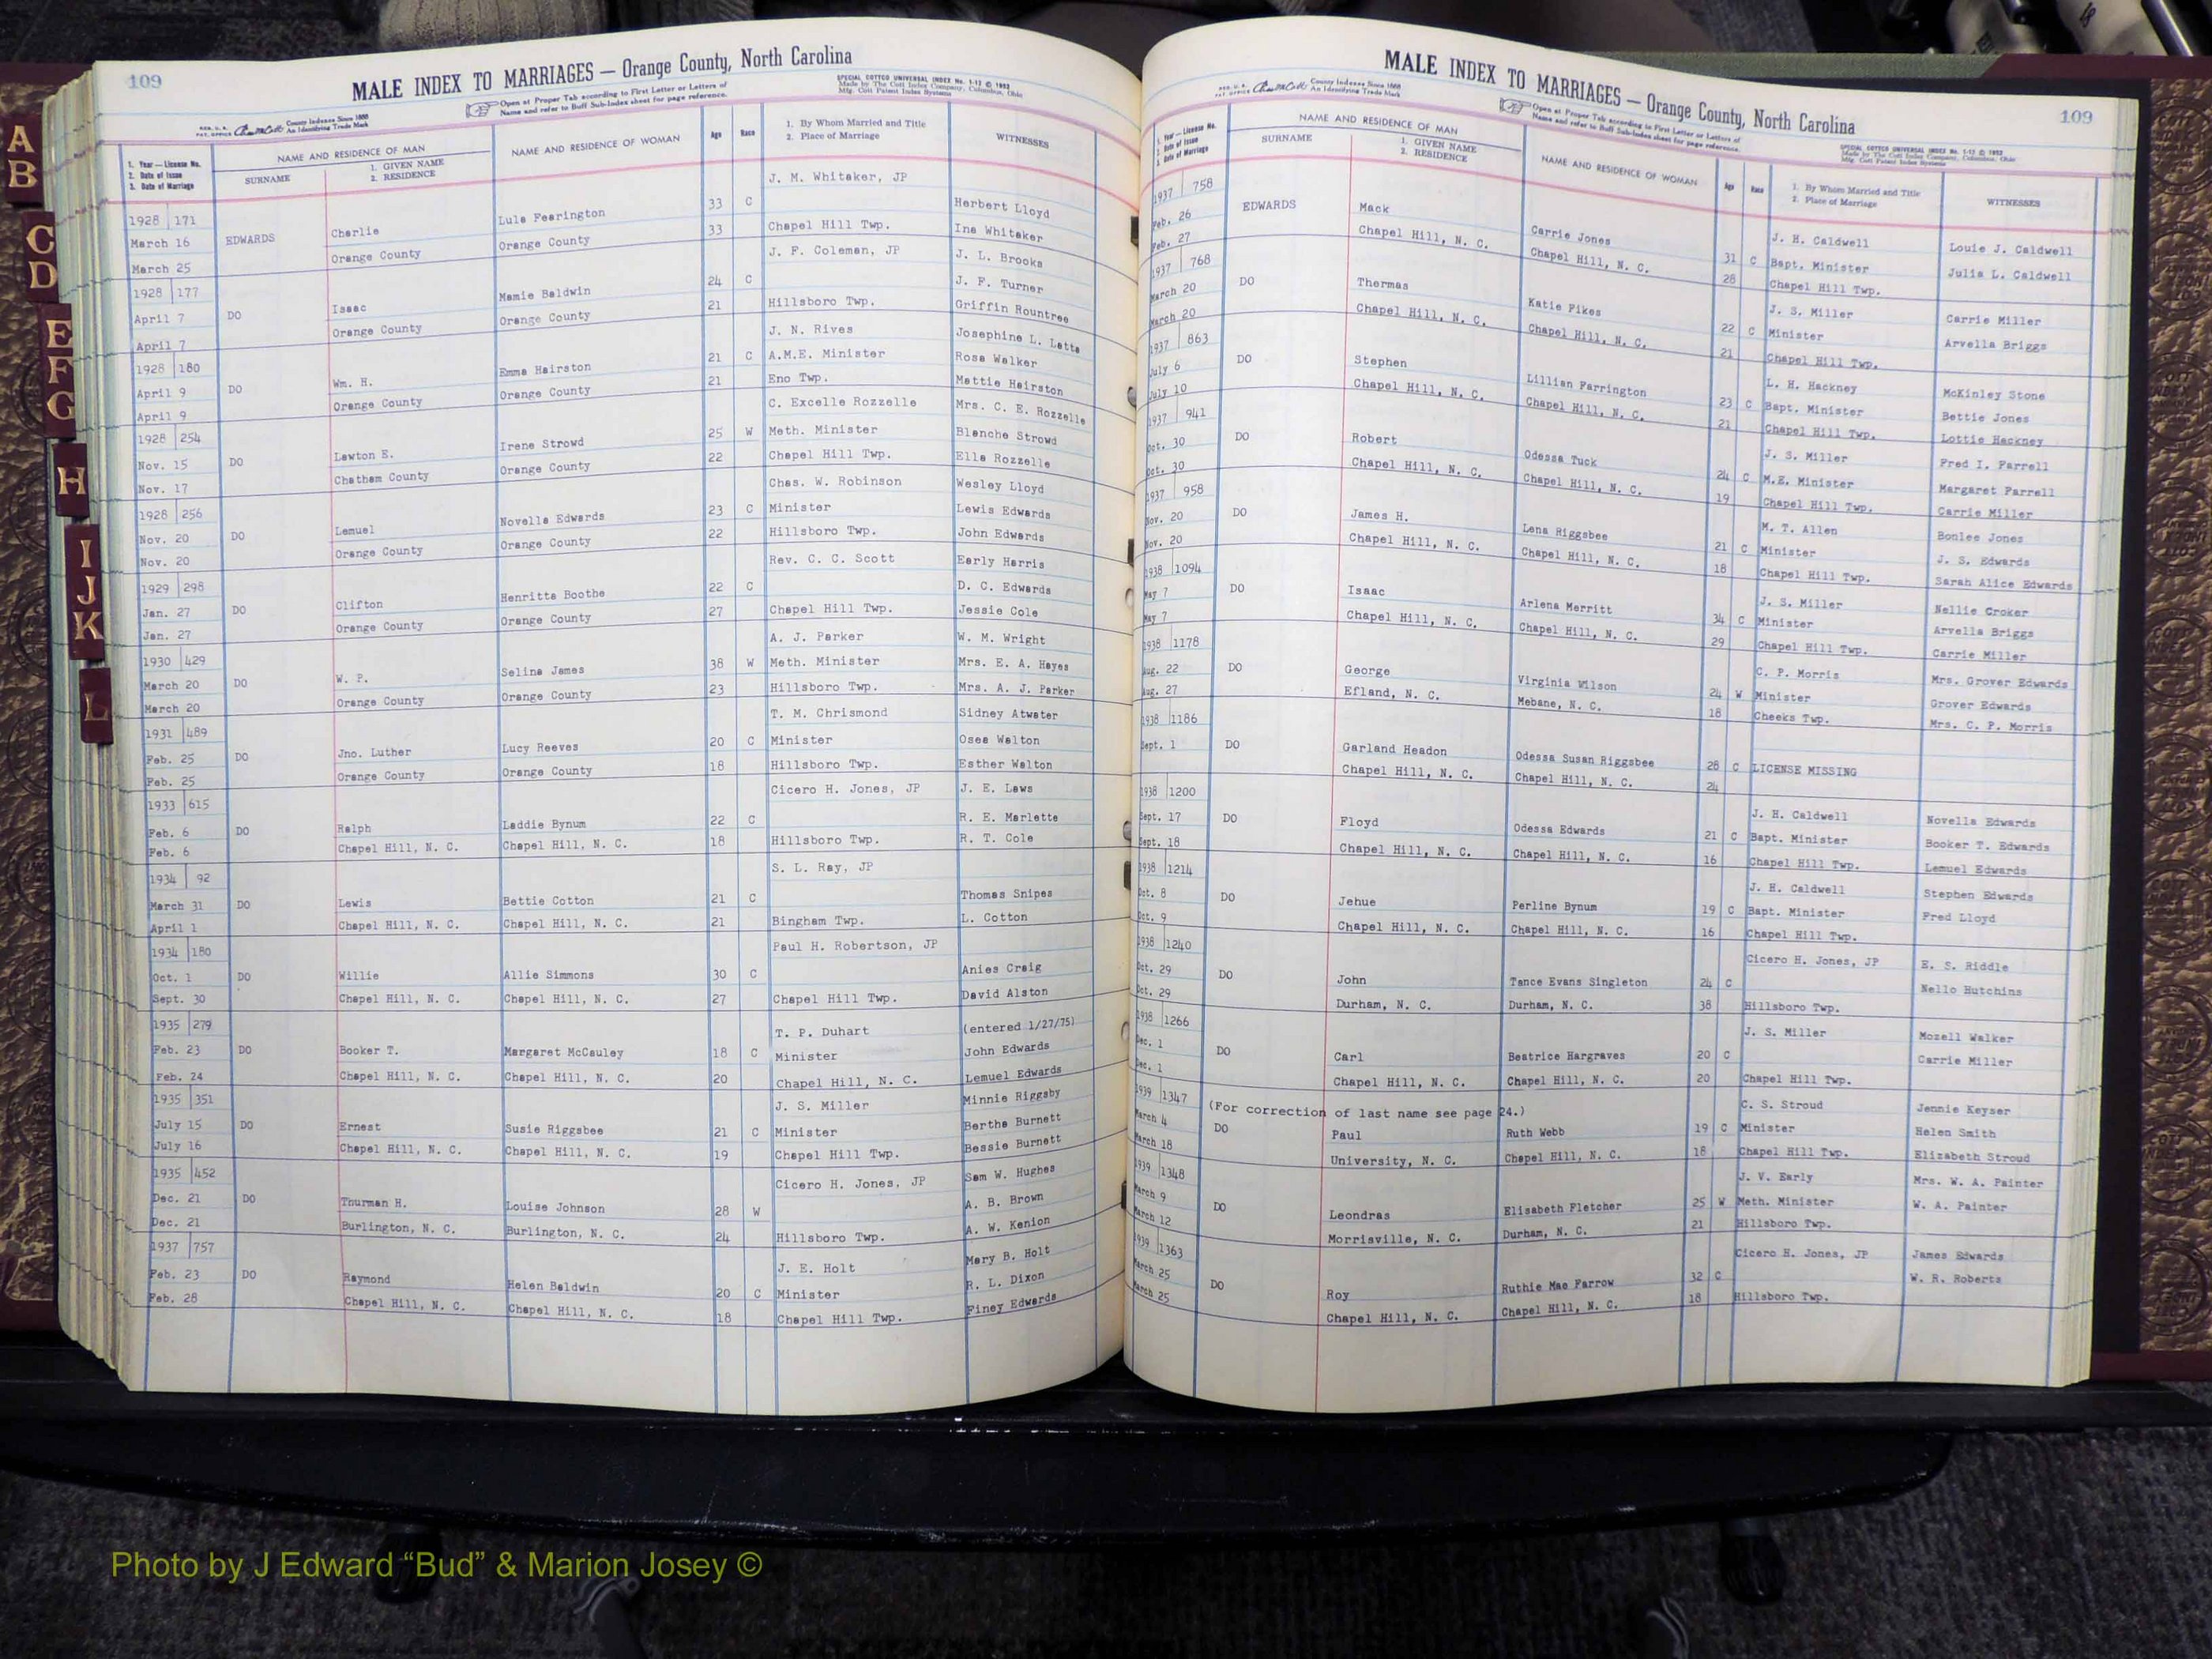 A
B
C
D
E
F
G
H
I
J
K
L
109
MALE INDEX TO MARRIAGES — Orange County, North Carolina
Open at Proper Tab according to First Letter or Letters of
Name and refer to Buff Sub-Index sheet for page reference.
SPECIAL COTTCO UNIVERSAL INDEX No. 1-12 © 1952
Made by The Cott Index Company, Columbus, Ohio
Mfg. Cott Patent Index Systems
REG. U. S. PAT. OFFICE County Indexes Since 1888
An Identifying Trade Mark
1. Year — License No.
2. Date of Issue
3. Date of Marriage
NAME AND RESIDENCE OF MAN
SURNAME 1. GIVEN NAME
2. RESIDENCE
NAME AND RESIDENCE OF WOMAN
Age Race
1. By Whom Married and Title
2. Place of Marriage
WITNESSES
J. M. Whitaker, JP
1928 171 33 C Herbert Lloyd
March 16 EDWARDS Charlie Lula Fearington 33 Chapel Hill Twp. Ina Whitaker
March 25 Orange County Orange County
J. F. Coleman, JP J. L. Brooks
1928 177 24 C J. F. Turner
April 7 DO Isaac Mamie Baldwin 21 Hillsboro Twp. Griffin Rountree
April 7 Orange County Orange County
J. N. Rives Josephine L. Latta
1928 180 21 C A.M.E. Minister Rosa Walker
April 9 DO Wm. H. Emma Hairston 21 Eno Twp. Mattie Hairston
April 9 Orange County Orange County
C. Excelle Rozzelle Mrs. C. E. Rozzelle
1928 254 25 W Meth. Minister Blanche Strowd
Nov. 15 DO Lawton E. Irene Strowd 22 Chapel Hill Twp. Ella Rozzelle
Nov. 17 Chatham County Orange County
Chas. W. Robinson Wesley Lloyd
1928 256 23 C Minister Lewis Edwards
Nov. 20 DO Lemuel Novella Edwards 22 Hillsboro Twp. John Edwards
Nov. 20 Orange County Orange County
Rev. C. C. Scott Early Harris
1929 298 22 C D. C. Edwards
Jan. 27 DO Clifton Henritta Boothe 27 Chapel Hill Twp. Jessie Cole
Jan. 27 Orange County Orange County
A. J. Parker W. M. Wright
1930 429 38 W Meth. Minister Mrs. E. A. Hayes
March 20 DO W. P. Selina James 23 Hillsboro Twp. Mrs. A. J. Parker
March 20 Orange County Orange County
T. M. Chrismond Sidney Atwater
1931 489 20 C Minister Osea Walton
Feb. 25 DO Jno. Luther Lucy Reeves 18 Hillsboro Twp. Esther Walton
Feb. 25 Orange County Orange County
Cicero H. Jones, JP J. E. Laws
1933 615 22 C R. E. Marlette
Feb. 6 DO Ralph Laddie Bynum 18 Hillsboro Twp. R. T. Cole
Feb. 6 Chapel Hill, N. C. Chapel Hill, N. C.
S. L. Ray, JP
1934 92
March 31 DO Lewis Bettie Cotton 21 C Thomas Snipes
April 1 Chapel Hill, N. C. Chapel Hill, N. C. 21 Bingham Twp. L. Cotton
1934 180 Paul H. Robertson, JP
Oct. 1 DO Willie Allie Simmons 30 C Anies Craig
Sept. 30 Chapel Hill, N. C. Chapel Hill, N. C. 27 Chapel Hill Twp. David Alston
1935 279 T. P. Duhart (entered 1/27/75)
Feb. 23 DO Booker T. Margaret McCauley 18 C Minister John Edwards
Feb. 24 Chapel Hill, N. C. Chapel Hill, N. C. 20 Chapel Hill, N. C. Lemuel Edwards
1935 351 J. S. Miller Minnie Riggsby
July 15 DO Ernest Susie Riggsbee 21 C Minister Bertha Burnett
July 16 Chapel Hill, N. C. Chapel Hill, N. C. 19 Chapel Hill Twp. Bessie Burnett
1935 452 Cicero H. Jones, JP Sam W. Hughes
Dec. 21 DO Thurman H. Louise Johnson 28 W A. B. Brown
Dec. 21 Burlington, N. C. Burlington, N. C. 24 Hillsboro Twp. A. W. Kenion
1937 757 J. E. Holt Mary B. Holt
Feb. 23 DO Raymond Helen Baldwin 20 C Minister R. L. Dixon
Feb. 28 Chapel Hill, N. C. Chapel Hill, N. C. 18 Chapel Hill Twp. Finey Edwards
MALE INDEX TO MARRIAGES — Orange County, North Carolina
109
REG. U. S. PAT. OFFICE County Indexes Since 1888
An Identifying Trade Mark
Open at Proper Tab according to First Letter or Letters of
Name and refer to Buff Sub-Index sheet for page reference.
SPECIAL COTTCO UNIVERSAL INDEX No. 1-12 © 1952
Made by The Cott Index Company, Columbus, Ohio
Mfg. Cott Patent Index Systems
1. Year — License No.
2. Date of Issue
3. Date of Marriage
NAME AND RESIDENCE OF MAN
SURNAME 1. GIVEN NAME
2. RESIDENCE
NAME AND RESIDENCE OF WOMAN
Age Race
1. By Whom Married and Title
2. Place of Marriage
WITNESSES
1937 758 J. H. Caldwell Louie J. Caldwell
Feb. 26 EDWARDS Mack Carrie Jones 31 C Bapt. Minister Julia L. Caldwell
Feb. 27 Chapel Hill, N. C. Chapel Hill, N. C. 28 Chapel Hill Twp.
1937 768 J. S. Miller Carrie Miller
March 20 DO Thermas Katie Pikes 22 C Minister Arvella Briggs
March 20 Chapel Hill, N. C. Chapel Hill, N. C. 21 Chapel Hill Twp.
1937 863 L. H. Hackney McKinley Stone
July 6 DO Stephen Lillian Farrington 23 C Bapt. Minister Bettie Jones
July 10 Chapel Hill, N. C. Chapel Hill, N. C. 21 Chapel Hill Twp. Lottie Hackney
1937 941 J. S. Miller Fred I. Farrell
Oct. 30 DO Robert Odessa Tuck 24 C M.E. Minister Margaret Farrell
Oct. 30 Chapel Hill, N. C. Chapel Hill, N. C. 19 Chapel Hill Twp. Carrie Miller
1937 958 M. T. Allen Bonlee Jones
Nov. 20 DO James H. Lena Riggsbee 21 C Minister J. S. Edwards
Nov. 20 Chapel Hill, N. C. Chapel Hill, N. C. 18 Chapel Hill Twp. Sarah Alice Edwards
1938 1094 J. S. Miller Nellie Croker
May 7 DO Isaac Arlena Merritt 34 C Minister Arvella Briggs
May 7 Chapel Hill, N. C. Chapel Hill, N. C. 29 Chapel Hill Twp. Carrie Miller
1938 1178 C. P. Morris Mrs. Grover Edwards
Aug. 22 DO George Virginia Wilson 24 W Minister Grover Edwards
Aug. 27 Efland, N. C. Mebane, N. C. 18 Cheeks Twp. Mrs. C. P. Morris
1938 1186
Sept. 1 DO Garland Headon Odessa Susan Riggsbee 28 C LICENSE MISSING
Chapel Hill, N. C. Chapel Hill, N. C. 24
1938 1200 J. H. Caldwell Novella Edwards
Sept. 17 DO Floyd Odessa Edwards 21 C Bapt. Minister Booker T. Edwards
Sept. 18 Chapel Hill, N. C. Chapel Hill, N. C. 16 Chapel Hill Twp. Lemuel Edwards
1938 1214 J. H. Caldwell Stephen Edwards
Oct. 8 DO Jehue Perline Bynum 19 C Bapt. Minister Fred Lloyd
Oct. 9 Chapel Hill, N. C. Chapel Hill, N. C. 16 Chapel Hill Twp.
1938 1240 Cicero H. Jones, JP E. S. Riddle
Oct. 29 DO John Tance Evans Singleton 24 C Nello Hutchins
Oct. 29 Durham, N. C. Durham, N. C. 38 Hillsboro Twp.
1938 1266 J. S. Miller Mozell Walker
Dec. 1 DO Carl Beatrice Hargraves 20 C Carrie Miller
Dec. 1 Chapel Hill, N. C. Chapel Hill, N. C. 20 Chapel Hill Twp.
1939 1347 (For correction of last name see page 24.) C. S. Stroud Jennie Keyser
March 4 DO Paul Ruth Webb 19 C Minister Helen Smith
March 18 University, N. C. Chapel Hill, N. C. 18 Chapel Hill Twp. Elizabeth Stroud
1939 1348 J. V. Early Mrs. W. A. Painter
March 9 DO Leondras Elisabeth Fletcher 25 W Meth. Minister W. A. Painter
March 12 Morrisville, N. C. Durham, N. C. 21 Hillsboro Twp.
1939 1363 Cicero H. Jones, JP James Edwards
March 25 DO Roy Ruthie Mae Farrow 32 C W. R. Roberts
March 25 Chapel Hill, N. C. Chapel Hill, N. C. 18 Hillsboro Twp.
Photo by J Edward “Bud” & Marion Josey ©